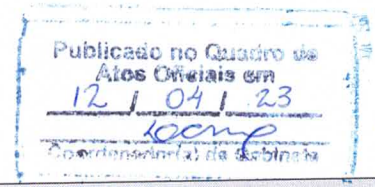 Publicado no Quadro de
Atos Oficiais em
12 / 04 / 23
Coordenador(a) de Gabinete